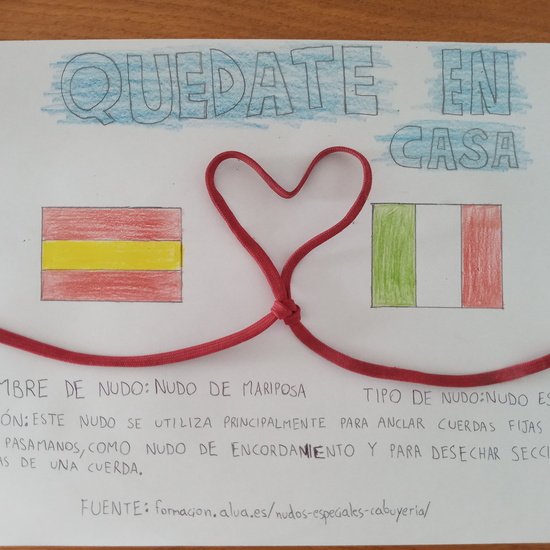 QUEDATE EN
CASA
MBRE DE NUDO: NUDO DE MARIPOSA TIPO DE NUDO: NUDO ES
ÓN: ESTE NUDO SE UTILIZA PRINCIPALMENTE PARA ANCLAR CUERDAS FIJAS
PASAMANOS, COMO NUDO DE ENCORDAMIENTO Y PARA DESECHAR SECCI
AS DE UNA CUERDA.
FUENTE: formacion.alua.es/nudos-especiales-cabuyeria/